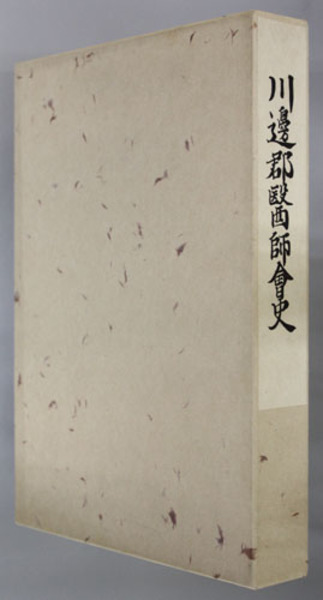 川邊郡醫師會史